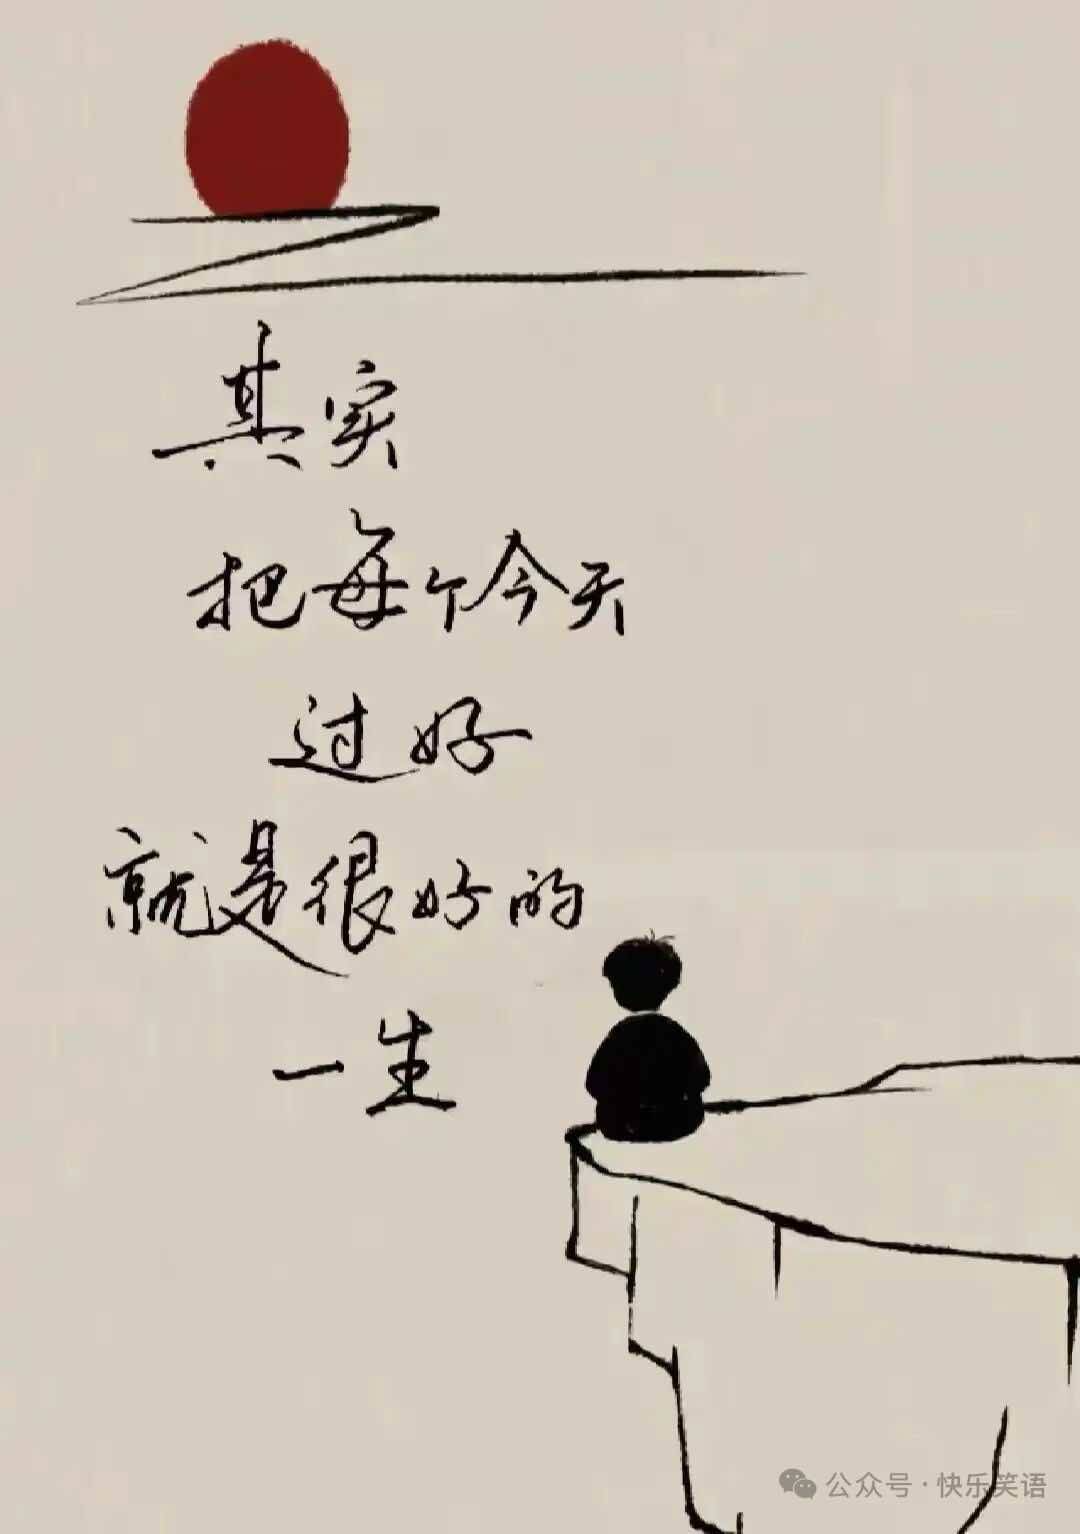 其实
把每个今天
过好
就是很好的
一生
公众号·快乐笑语